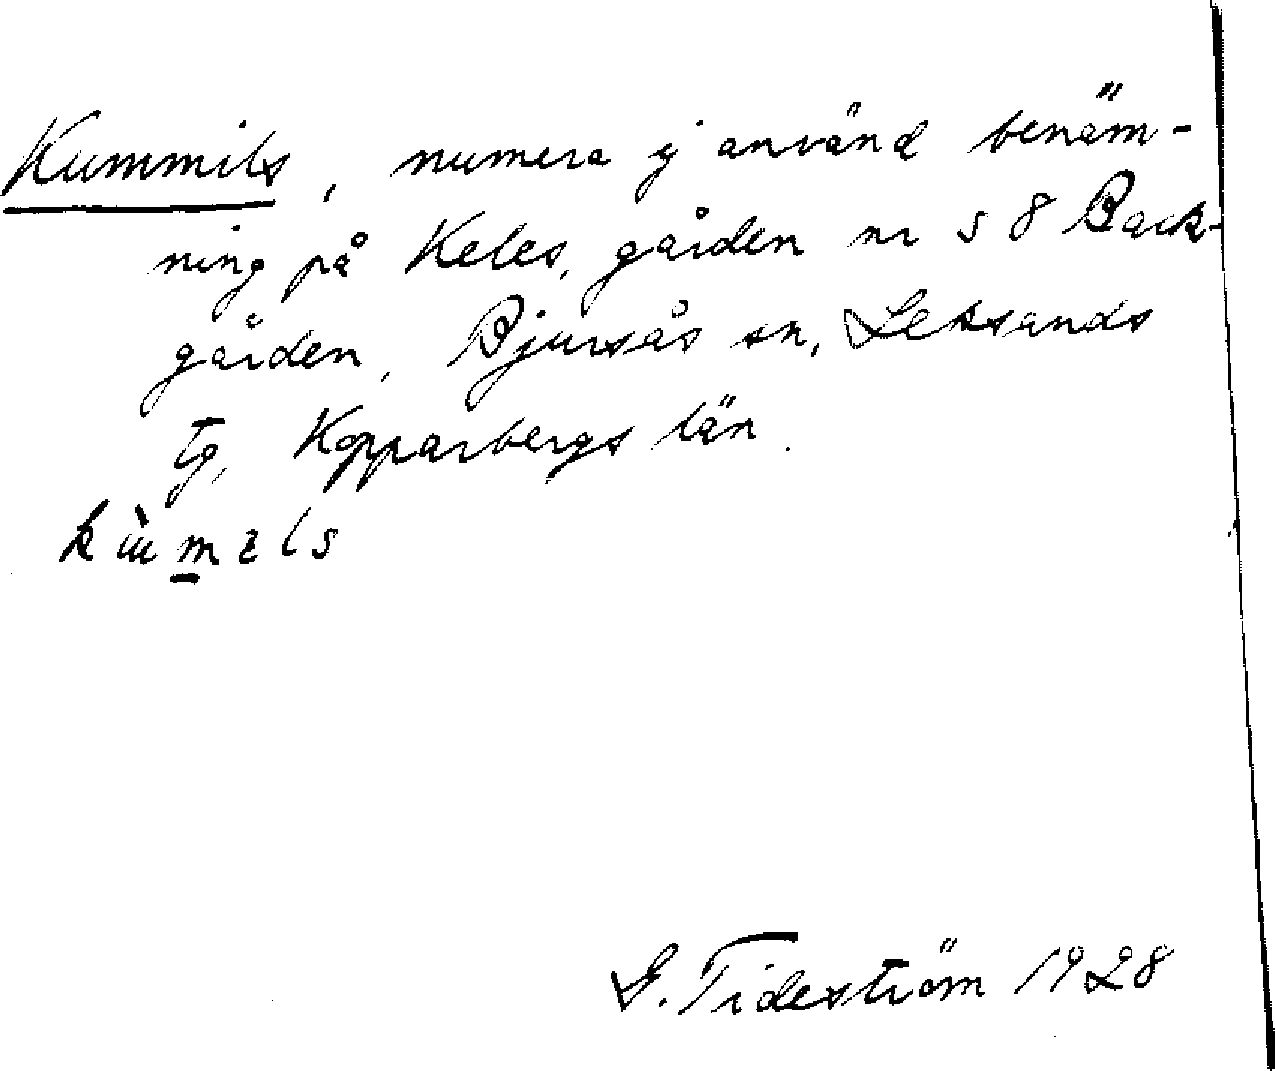 Kummils, numera ej använd benäm-
ning på Keles, gården nr 58 Back-
gården, Bjursås sn, Leksands
tg, Kopparbergs län.
G. Tideström 1928